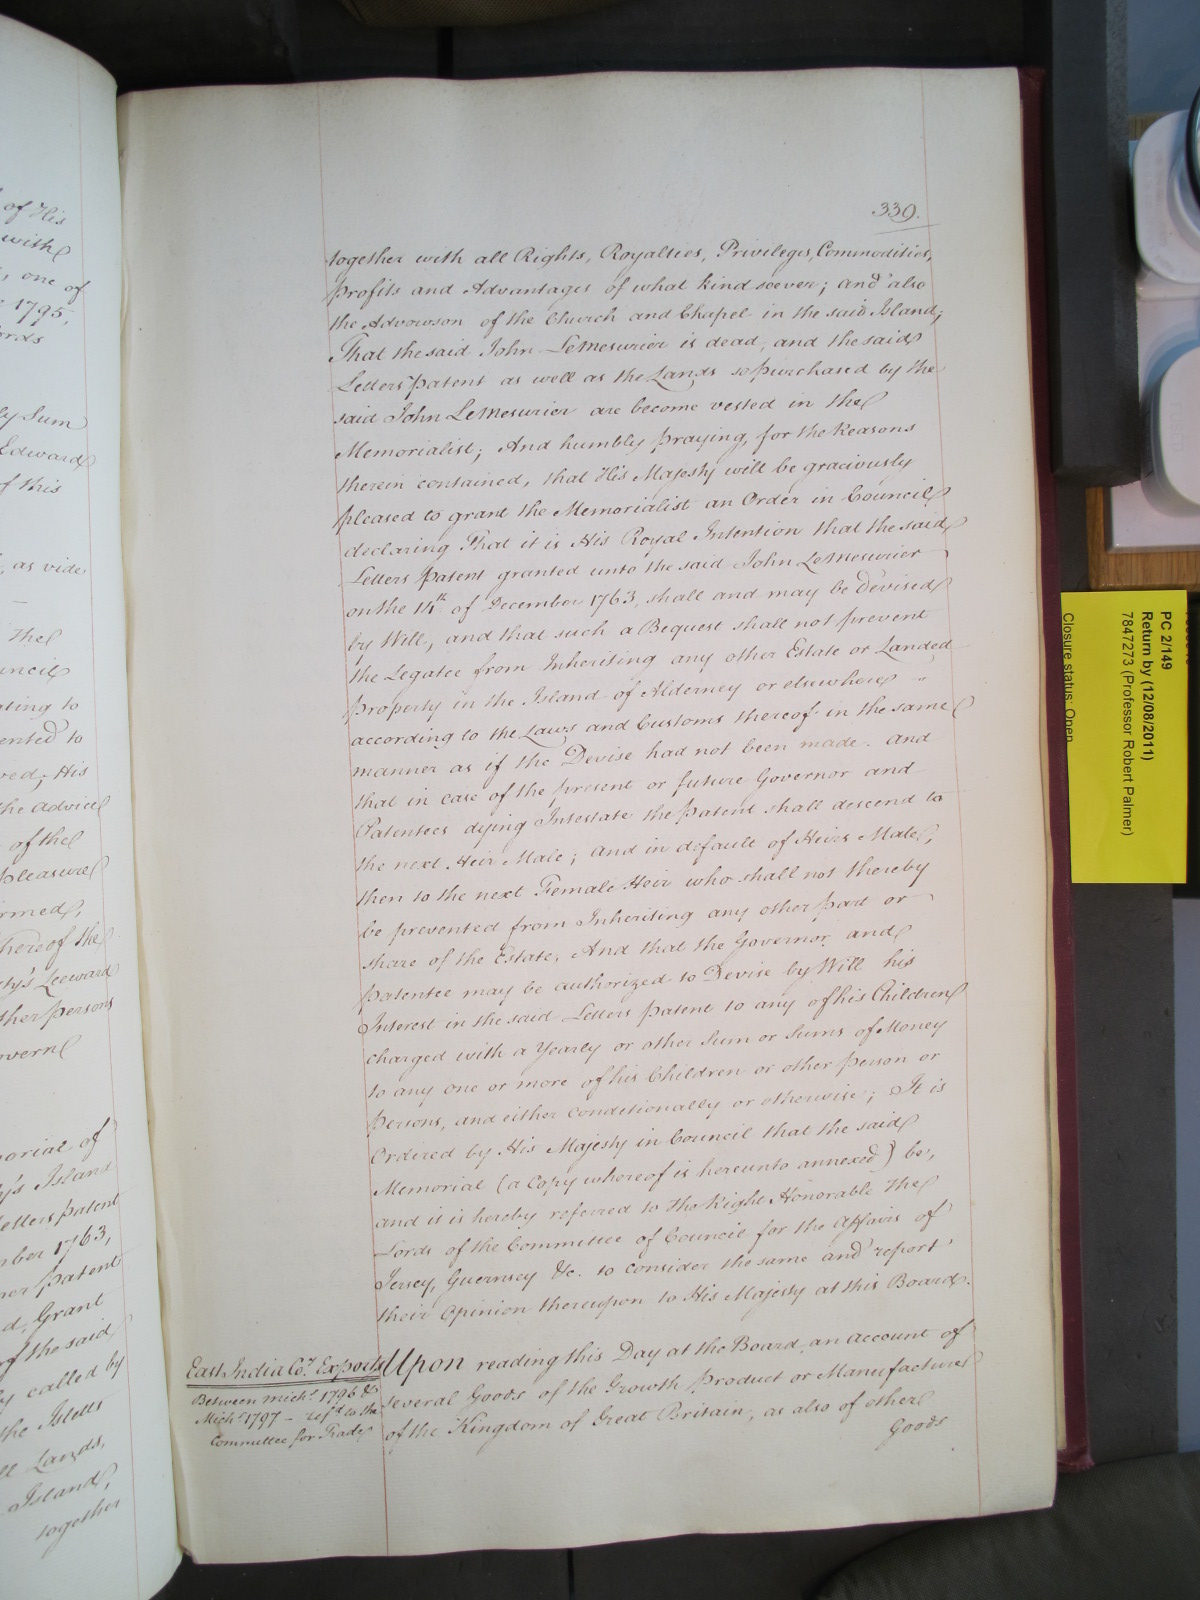 of His
with
, one of
1795,
Lords
ly Sum
Edward
of this
, as vide
The
uncil
ating to
ented to
ved, His
the advice
of the
pleasure
irmed,
thereof the
ty's Leeward
ther persons
overn
morial of
y's Island
Letters patent
mber 1763,
her patent
d, Grant
of the said
y called by
the Isletts
ll Lands,
Island,
together
339.
together with all Rights, Royalties, Privileges, Commodities,
profits and Advantages of what kind soever; and also
the Advowson of the Church and Chapel in the said Island;
That the said John LeMesurier is dead, and the said
Letters patent as well as the Lands so purchased by the
said John LeMesurier are become vested in the
Memorialist; And humbly praying, for the Reasons
therein contained, that His Majesty will be graciously
pleased to grant the Memorialist an Order in Council
declaring That it is His Royal Intention that the said
Letters patent granted unto the said John LeMesurier
on the 14th of December 1763, shall and may be devised
by Will, and that such a Bequest shall not prevent
the Legatee from Inheriting any other Estate or Landed
property in the Island of Alderney or elsewhere "
according to the Laws and Customs thereof in the same
manner as if the Devise had not been made. and
that in case of the present or future Governor and
Patentees dying Intestate the patent shall descend to
the next Heir Male; and in default of Heirs Male,
then to the next Female Heir who shall not thereby
be prevented from Inheriting any other part or
share of the Estate, And that the Governor and
patentee may be authorized to Devise by Will his
Interest in the said Letters patent to any of his Children
charged with a Yearly or other Sum or Sums of Money
to any one or more of his Children or other person or
persons, and either conditionally or otherwise; It is
Ordered by His Majesty in Council that the said
Memorial (a Copy whereof is hereunto annexed) be,
and it is hereby referred to The Right Honorable The
Lords of the Committee of Council for the Affairs of
Jersey, Guernsey &c. to consider the same and report
their Opinion thereupon to His Majesty at this Board.
East India Co.s Exports
Between Mich.s 1796 &
Mich.s 1797 – ref.d to the
Committee for Trade
Upon reading this Day at the Board, an Account of
several Goods of the Growth Product or Manufacture
of the Kingdom of Great Britain, as also of other
Goods
PC 2/149
Return by (12/08/2011)
7847273 (Professor Robert Palmer)
Closure status: Open